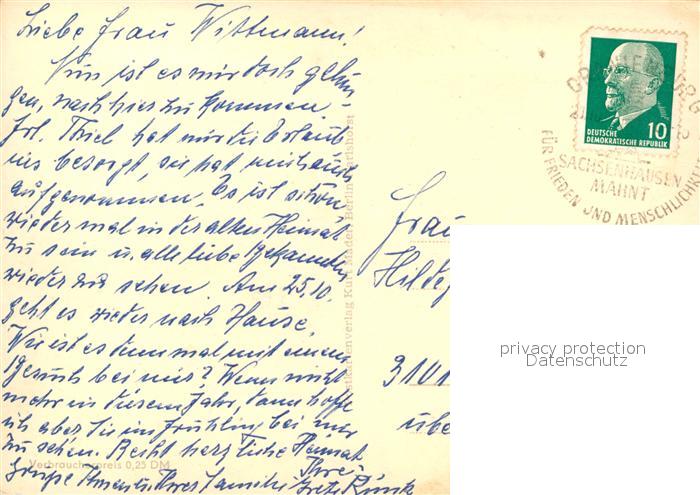 Liebe Frau Wittmann!
Nun ist es mir doch gelun-
gen, nach hier zu kommen.
Frl. Thiel hat mir die Erlaub-
nis besorgt, sie hat mich auch
aufgenommen. Es ist schön
wieder mal in der alten Heimat
zu sein u. alle liebe Bekannten
wieder zu sehen. Am 25.10.
geht es wieder nach Hause.
Wie ist es denn mal mit einem
Besuch bei mir? Wenn nicht
mehr in diesem Jahr, dann hoffe
ich aber Sie im Frühling bei mir
zu sehen. Recht herzliche Heimat
Grüße Ihnen u. Ihrer Familie Ihre
Grete
Verbraucherpreis 0,25 DM
Berlin-Karlshorst
DEUTSCHE
DEMOKRATISCHE REPUBLIK
10
SACHSENHAUSEN
MAHNT
FÜR FRIEDEN UND MENSCHLICHK
Frau
Hilde
3101
übe
privacy protection
Datenschutz